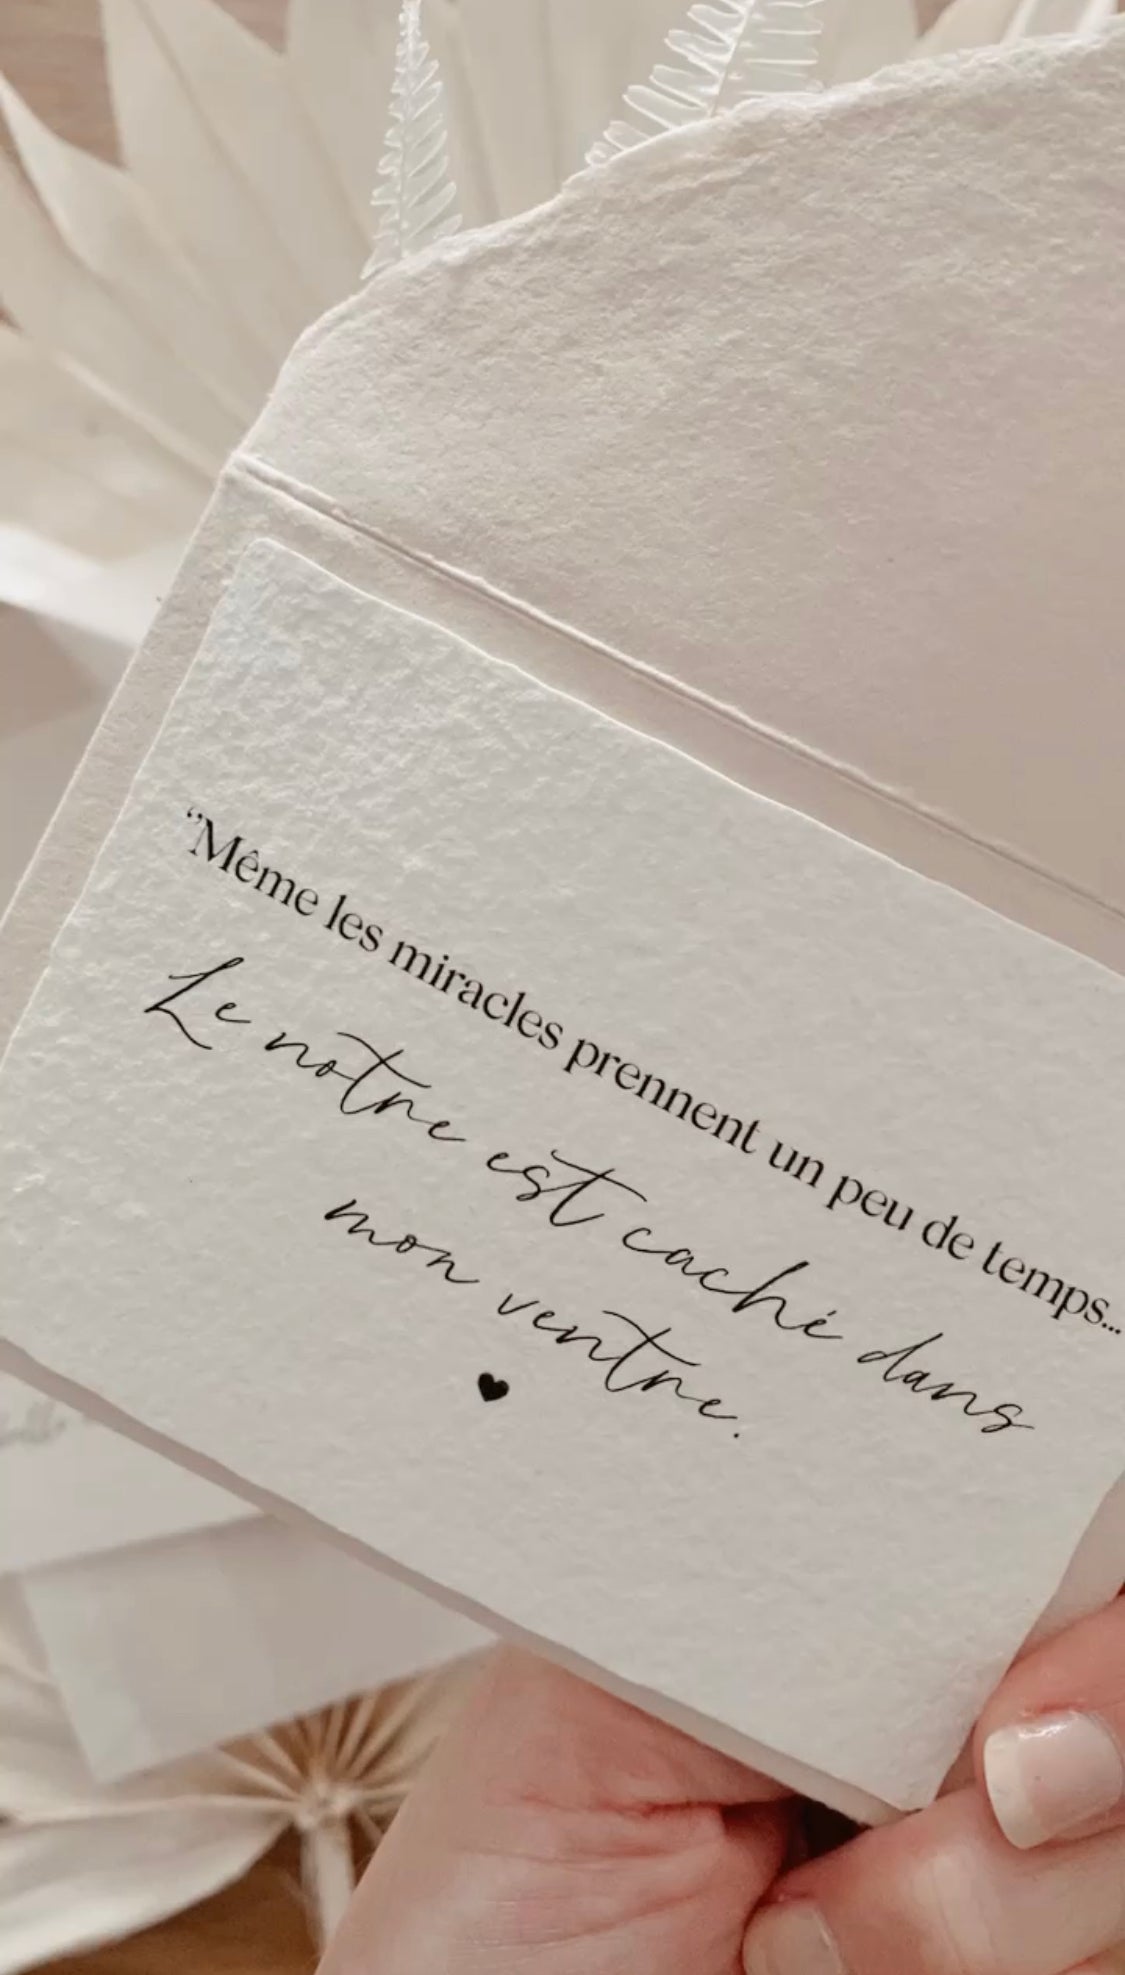 “Même les miracles prennent un peu de temps...
Le nôtre est caché dans
mon ventre.